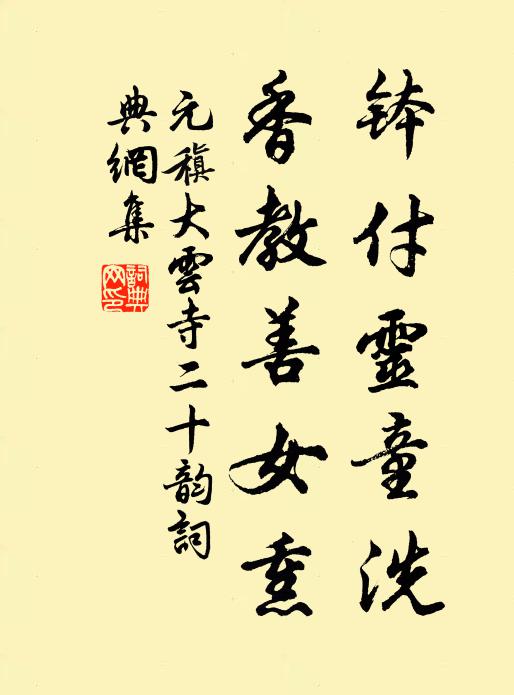 钵付靈童洗
香教善女熏
元稹大雲寺二十韵詞
典網集
詞典網印